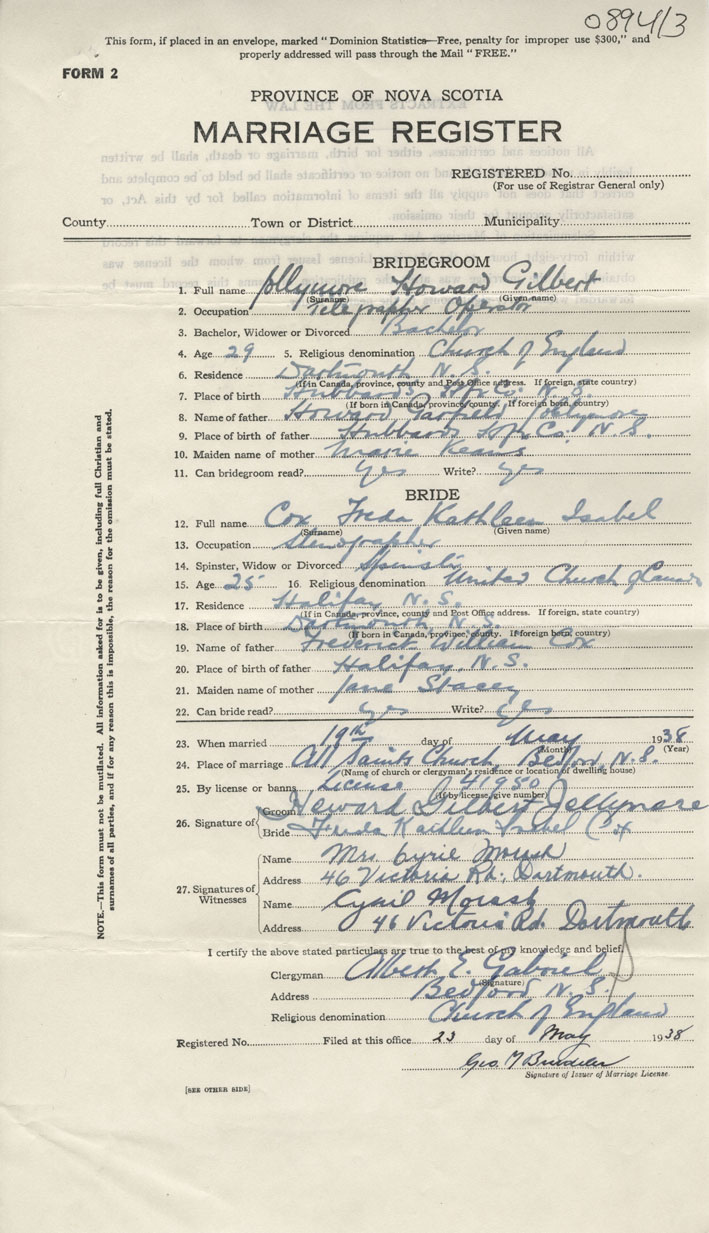 0894/3
This form, if placed in an envelope, marked "Dominion Statistics—Free, penalty for improper use $300," and
properly addressed will pass through the Mail "FREE."
FORM 2
PROVINCE OF NOVA SCOTIA
MARRIAGE REGISTER
REGISTERED No.
(For use of Registrar General only)
County Town or District Municipality
BRIDEGROOM
1. Full name Jollymore Howard Gilbert
(Surname) (Given name)
2. Occupation Telegrapher Operator
3. Bachelor, Widower or Divorced Bachelor
4. Age 29 5. Religious denomination Church of England
6. Residence Dartmouth N.S.
(If in Canada, province, county and Post Office address. If foreign, state country)
7. Place of birth Hubbards Hfx Co. N.S.
(If born in Canada, province, county. If foreign born, country)
8. Name of father Howard Garfield Jollymore
9. Place of birth of father Hubbards Hfx Co. N.S.
10. Maiden name of mother Marie
11. Can bridegroom read? yes Write? yes
BRIDE
12. Full name Cox Freda Kathleen Isabel
(Surname) (Given name)
13. Occupation Stenographer
14. Spinster, Widow or Divorced Spinster
15. Age 25 16. Religious denomination United Church of Canada
17. Residence Halifax, N.S.
(If in Canada, province, county and Post Office address. If foreign, state country)
18. Place of birth Dartmouth, N.S.
(If born in Canada, province, county. If foreign born, country)
19. Name of father Frederick William Cox
20. Place of birth of father Halifax, N.S.
21. Maiden name of mother Jane Stacey
22. Can bride read? yes Write? yes
23. When married 19th day of May 1938
(Month) (Year)
24. Place of marriage All Saints Church, Bedford, N.S.
(Name of church or clergyman's residence or location of dwelling house)
25. By license or banns License 41950
(If by license, give number)
26. Signature of Groom Howard Gilbert Jollymore
Bride Freda Kathleen Isabel Cox
27. Signatures of Witnesses
Name Mrs. Cyril Morash
Address 46 Victoria Rd. Dartmouth.
Name Cyril Morash
Address 46 Victoria Rd. Dartmouth
I certify the above stated particulars are true to the best of my knowledge and belief.
Clergyman Albert E. Gabriel
(Signature)
Address Bedford N.S.
Religious denomination Church of England
Registered No. Filed at this office 23 day of May 1938
Geo.
Signature of Issuer of Marriage License.
[SEE OTHER SIDE]
NOTE.—This form must not be mutilated. All information asked for is to be given, including full Christian and
surnames of all parties, and if for any reason this is impossible, the reason for the omission must be stated.